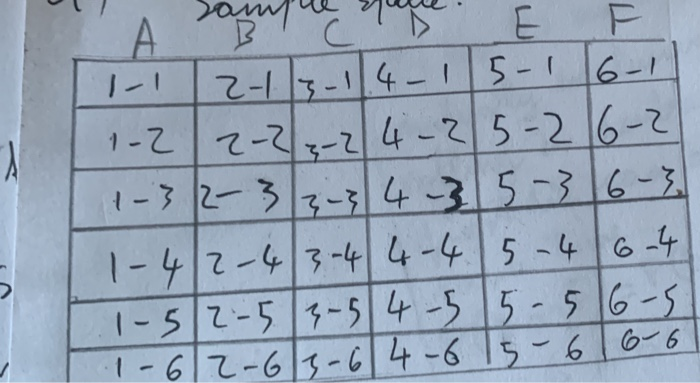 Sample space:
A B C D E F
1-1 2-1 3-1 4-1 5-1 6-1
1-2 2-2 3-2 4-2 5-2 6-2
1-3 2-3 3-3 4-3 5-3 6-3
1-4 2-4 3-4 4-4 5-4 6-4
1-5 2-5 3-5 4-5 5-5 6-5
1-6 2-6 3-6 4-6 5-6 6-6